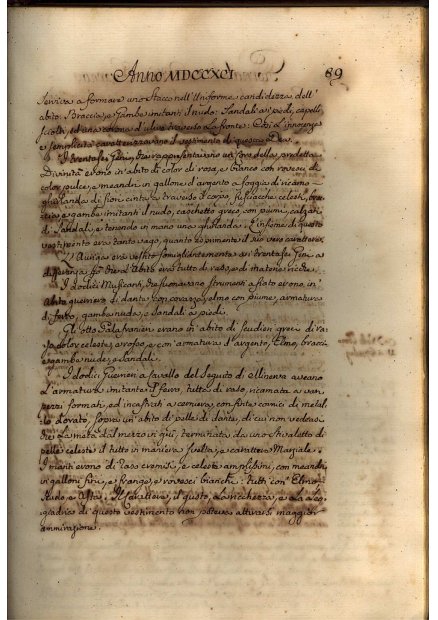 Anno MDCCXCI 89
serviva a formare uno Stacco nell'Uniforme candidezza dell'
abito. Braccia, e Gambe imitanti l nudo. Sandali ai piedi, capelli
sciolti, ed una corona d'ulivo attraverso la fronte: Così l'innocenza
e semplicità caratterizzavano il vestimento di questa Dea.
I trentasei Genj, che rappresentavano un Coro della predetta
Divinità erano in abito di color di rosa, e bianco con rovesci di
color pulce, e meandri in gallone d'argento a foggia di ricamo
ghirlanda di fiori cinta a traverso il corpo, fusciacche celesti, brac-
cia, e gambe imitanti l nudo, caschetto greco con piume, calzari
di Sandali, e tenendo in mano una ghirlanda. L'insieme di questo
vestimento era tanto vago, quanto esprimente il suo vero carattere.
L'Auriga era vestito somigliantemente ai trentasei Genj a
differenza che l'Abito era tutto di raso, e di materie ricche.
I dodici Musicanti, che suonavano strumenti a fiato erano in
Abito guerriero di dante con corazza, elmo con piume, armatura
di ferro, gambe nude, e sandali a piedi.
Gli otto Palafrenieri erano in abito di Scudieri greci di ra-
so color celeste, e rosso, e con armatura d'argento, Elmo, braccia
e gambe nude, e sandali.
I dodici Guerrieri a Cavallo del Seguito di Minerva aveano
l'armatura imitante il ferro, tutta di raso, ricamata a vari
pezzi formati, ed incastrati a cerniera, con finte cornici di metal-
lo dorato, sopra un'abito di pelle di dante, di cui non vedeva-
si che la metà dal mezzo in giù, terminata da uno Stivaletto di
pelle celeste il tutto in maniera svelta, e carattere Marziale.
I manti erano di raso cremisi, e celeste amplissimi, con meandri
in galloni fini, e frange, e rovesci bianchi: tutti con Elmo,
Scudo, e Asta. Il carattere, il gusto, la ricchezza, e la leg-
giadria di questo vestimento non poteva attirarsi maggior
ammirazione.